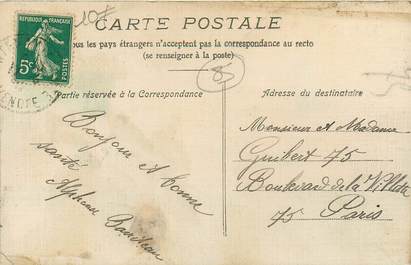 107
CARTE POSTALE
Tous les pays étrangers n'acceptent pas la correspondance au recto
(se renseigner à la poste)
RÉPUBLIQUE FRANÇAISE
5c
POSTES
85
Partie réservée à la Correspondance
Bonjour et bonne
santé
Alphonse
Adresse du destinataire
Monsieur et Madame
Guibert 75
Boulevard de la Villette
75 Paris